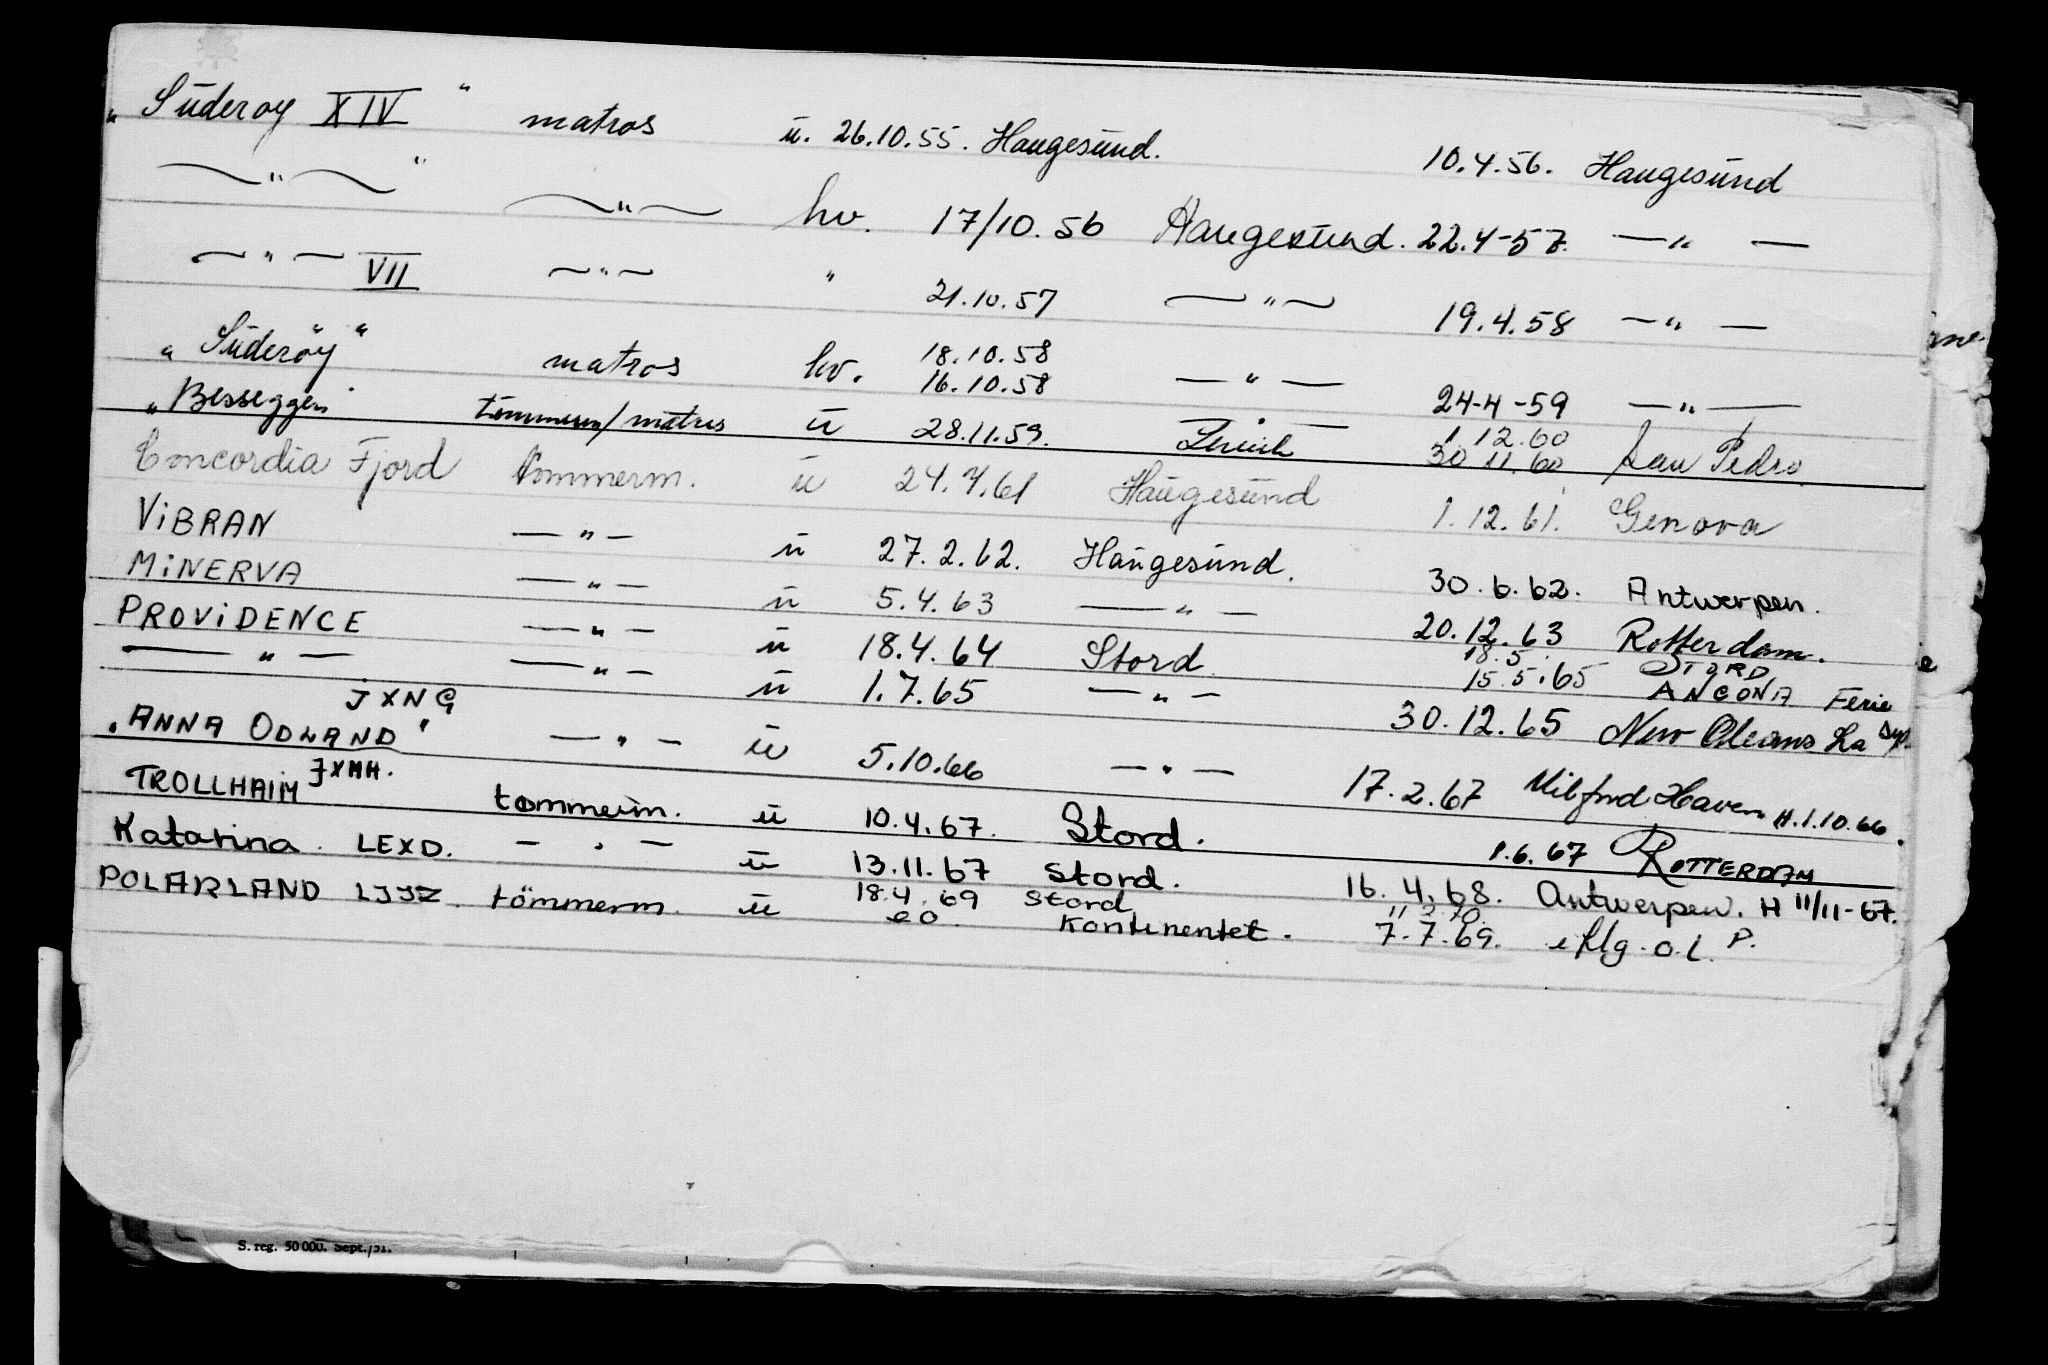 „ Süderoy XIV " matros ü. 26.10.55. Haugesünd. 10.4.56. Haugesünd
—"— " —"— hv. 17/10.56 Haugesund. 22.4-57. —"—
—"— VII —"— " 21.10.57 —"— 19.4.58 —"—
„ Süderöy " matros hv. 18.10.58 16.10.58 —"— 24-4-59 —"—
„ Besseggen " tömmerm/matros ü 28.11.59. 1 12.60 30 11.60 San Pedro
Concordia Fjord tommerm. ü 24.4.61 Haugesünd 1.12.61. Genova
ViBRAN —"— ü 27.2.62. Haugesund. 30.6.62. Antwerpen.
MiNERVA —"— ü 5.4.63 —"— 20.12.63 Rotterdam.
PROViDENCE —"— ü 18.4.64 Stord 18.5. 15.5.65 STORD ANCONA Ferie
—"— —"— ü 1.7.65 —"— 30.12.65 New Orleans La
JXNG
„ANNA ODLAND" —"— ü 5.10.66 —"— 17.2.67 Milford Haven H.1.10.66.
JXMH.
TROLLHAIM tommerm. ü 10.4.67. Stord. 1.6.67 ROTTERDAM
Katarina. LEXD. —"— ü 13.11.67 Stord. 16.4.68. Antwerpen. H 11/11-67.
POLARLAND LJJZ. tömmerm. ü 18.4.69 Stord 11 2.70.
eo. Kontinentet. 7.7.69. P.
S. reg. 50 000. Sept./51.